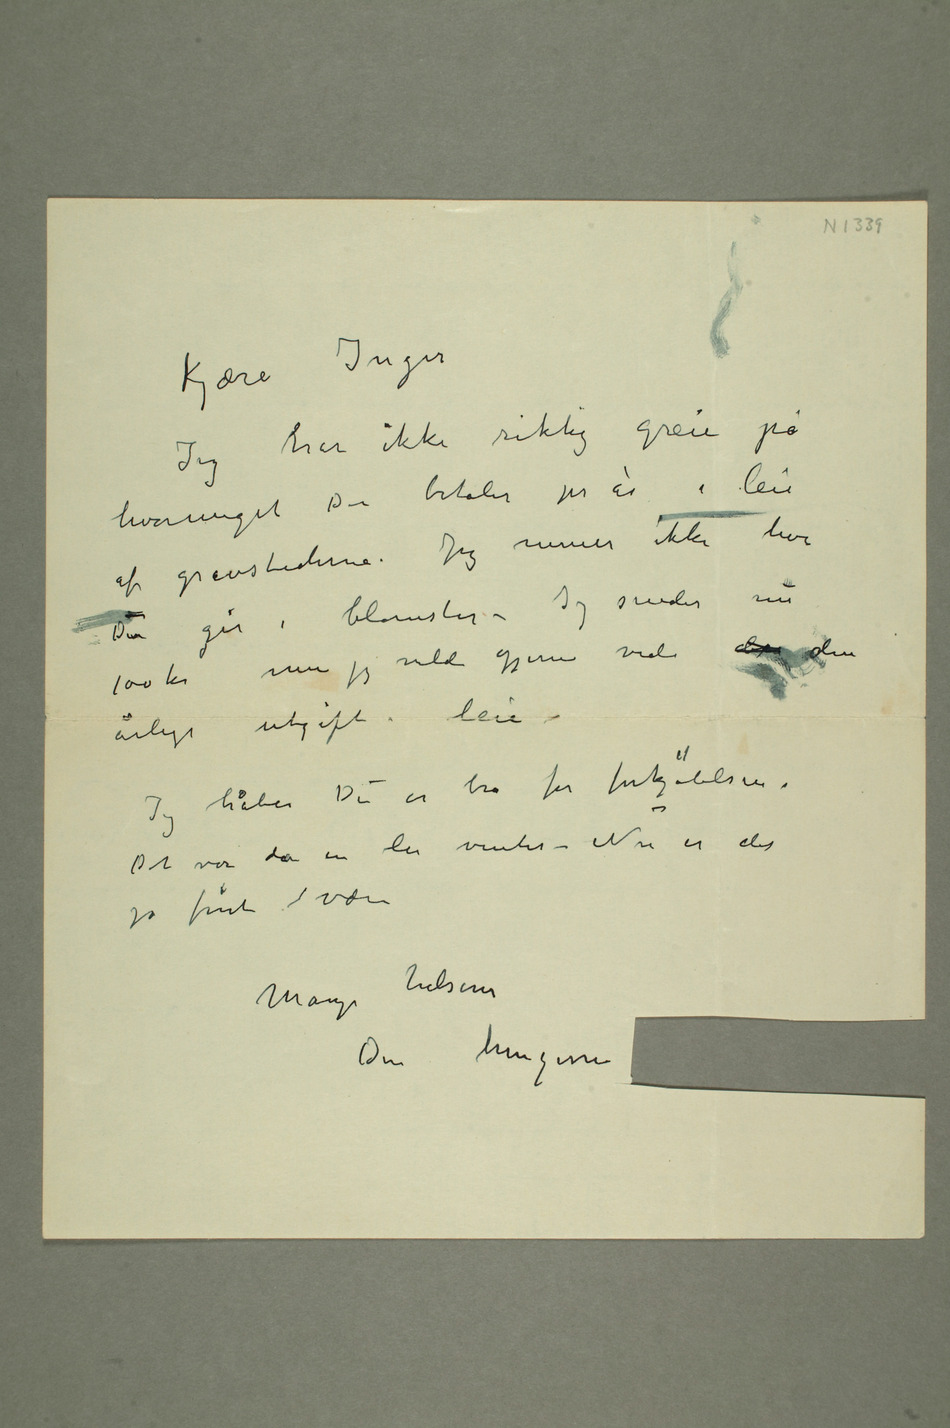 N 1339
Kjære Inger
Jeg har ikke riktig greie på
hvormeget Du betaler pr år i leie
af gravstederne. Jeg mener ikke hva
Du gir i blomster – Jeg sender nu
100 kr men jeg vilde gjerne vide den den
årlige utgift i leie –
Jeg håber Du er bra for forkjølelsen.
Det var da en lei vinter – Nu er det
jo fint vær
Mange hilsener
Din hengivne